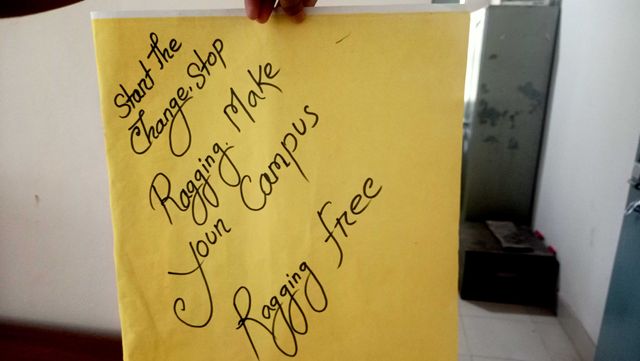 Start the
Change. Stop
Ragging. Make
Your Campus
Ragging Free